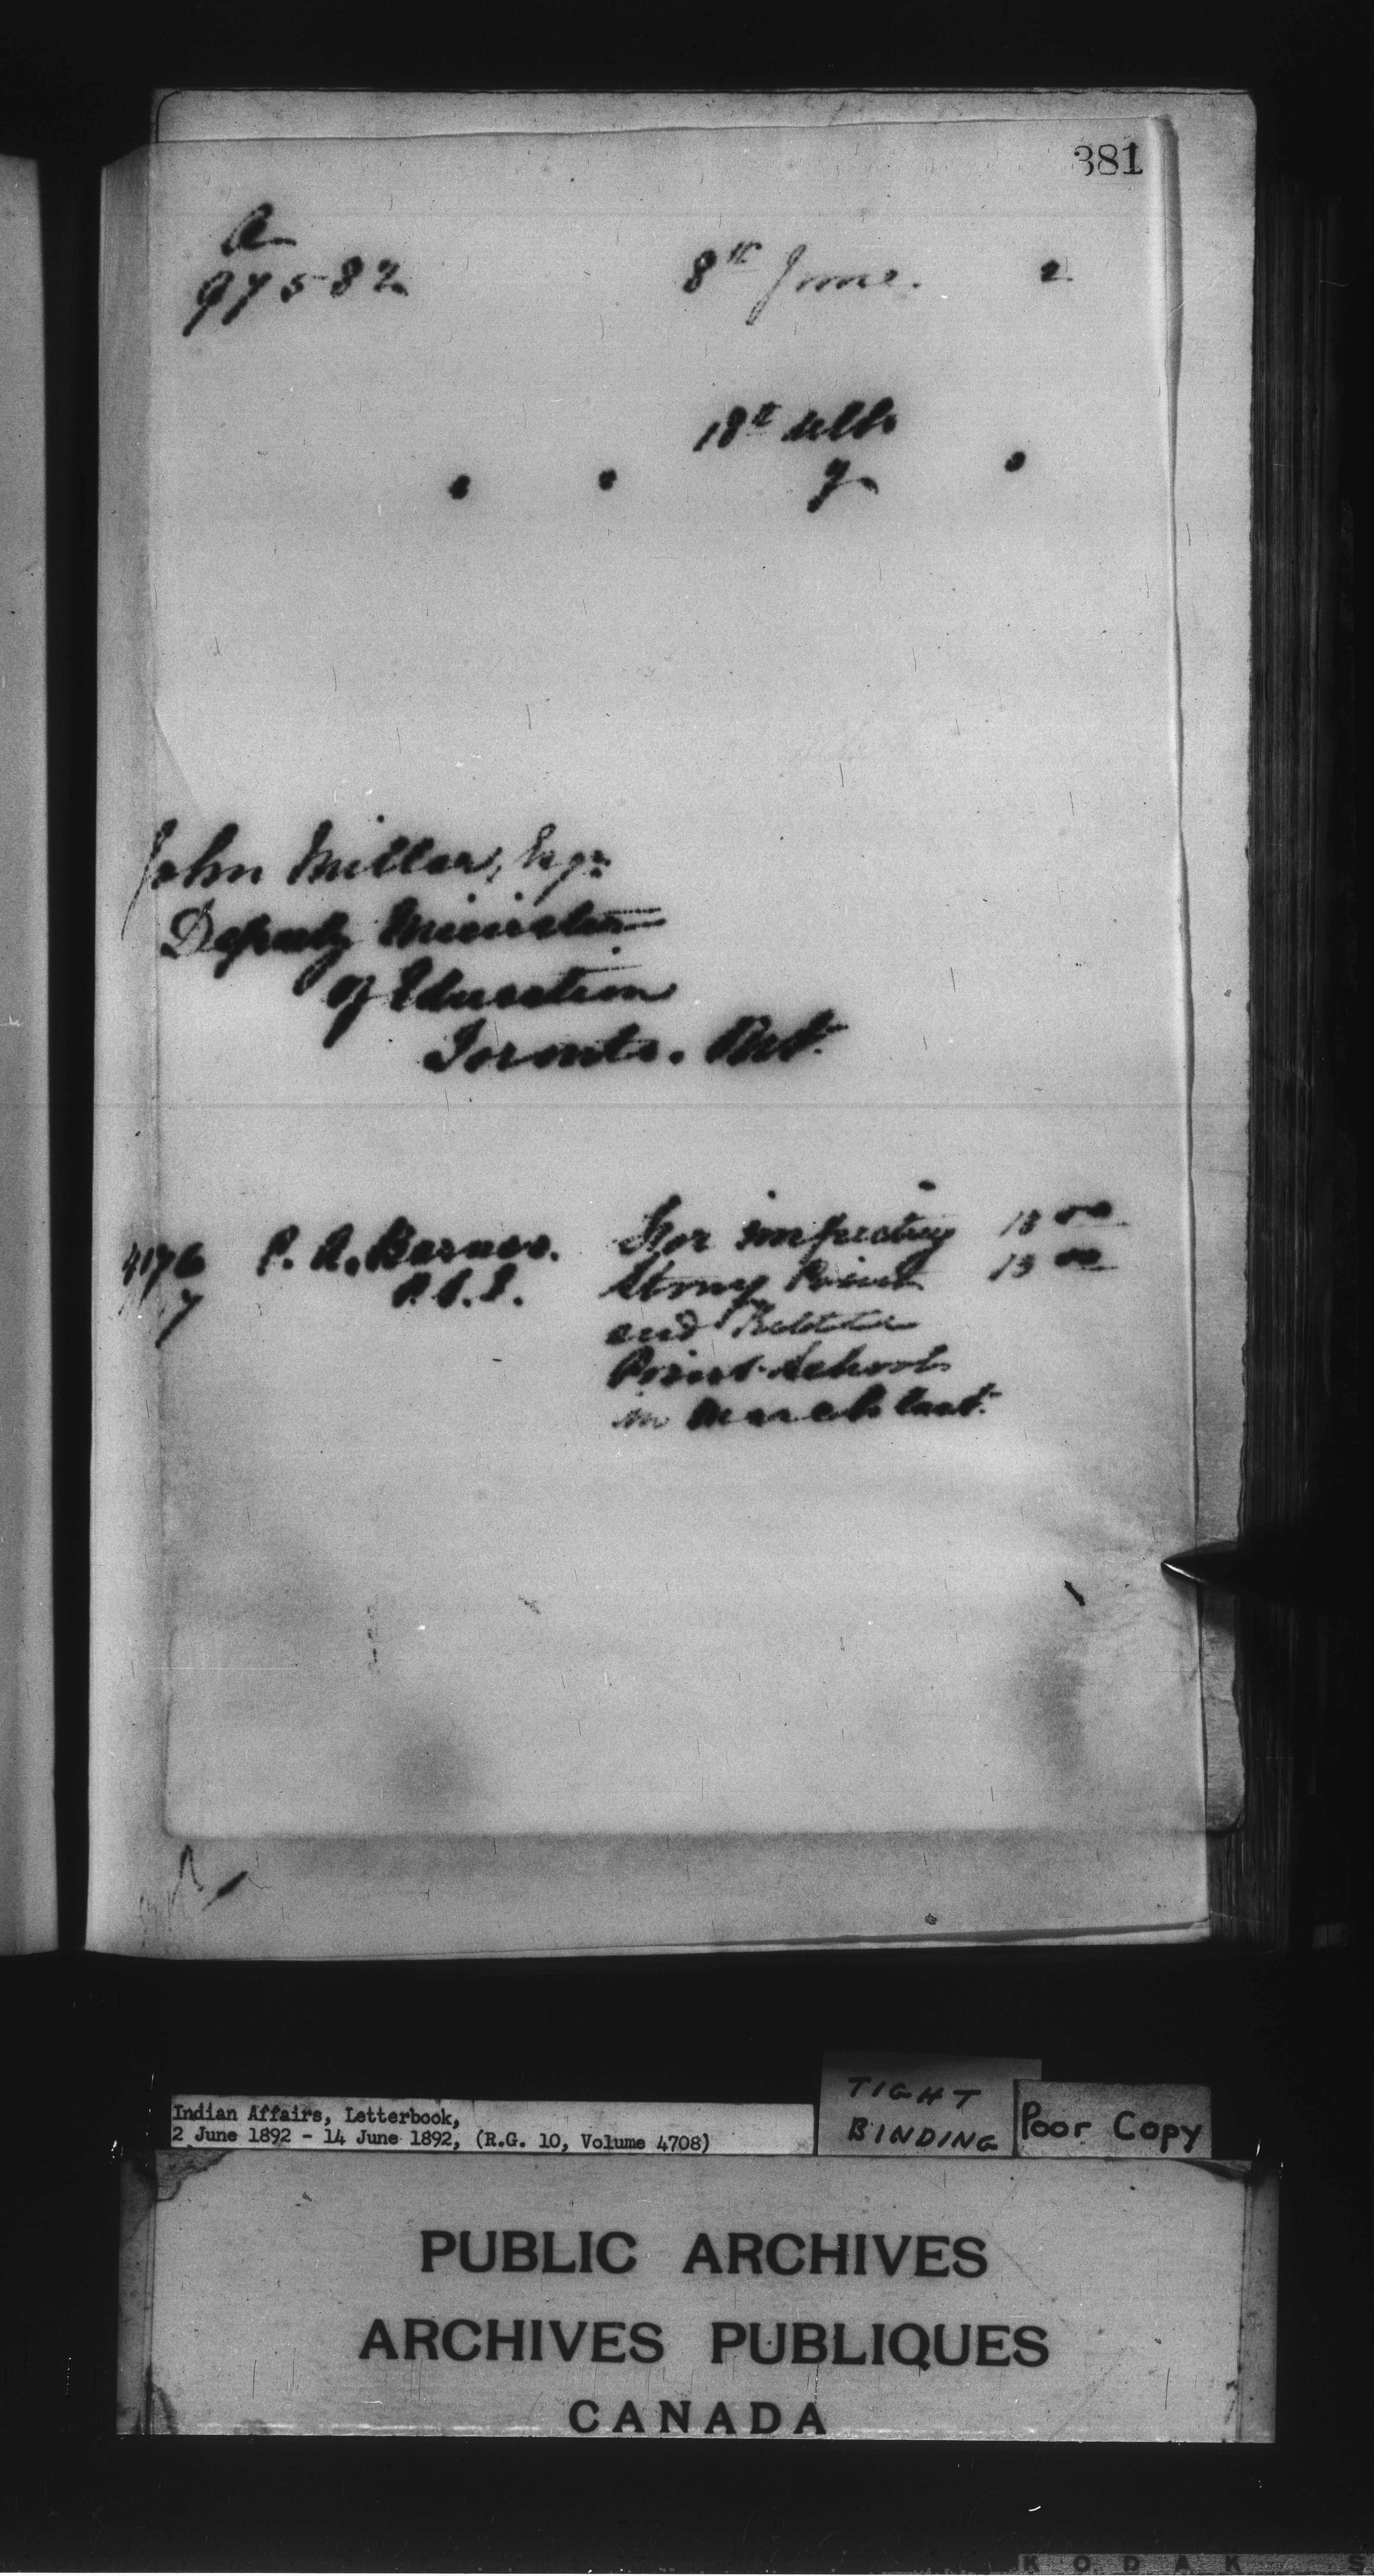 381
A
97582
8th June. 2
18th ulto
y
John Millar, Esqr
Deputy Minister
of Education
Toronto. Ont.
4176 C. A. Barnes. For inspecting 13 00
7 P.S.I. Stony Point 13 00
and Kettle
Point Schools
in March last.
Indian Affairs, Letterbook,
2 June 1892 - 14 June 1892, (R.G. 10, Volume 4708)
TIGHT
BINDING
Poor Copy
PUBLIC ARCHIVES
ARCHIVES PUBLIQUES
CANADA
KODAK S